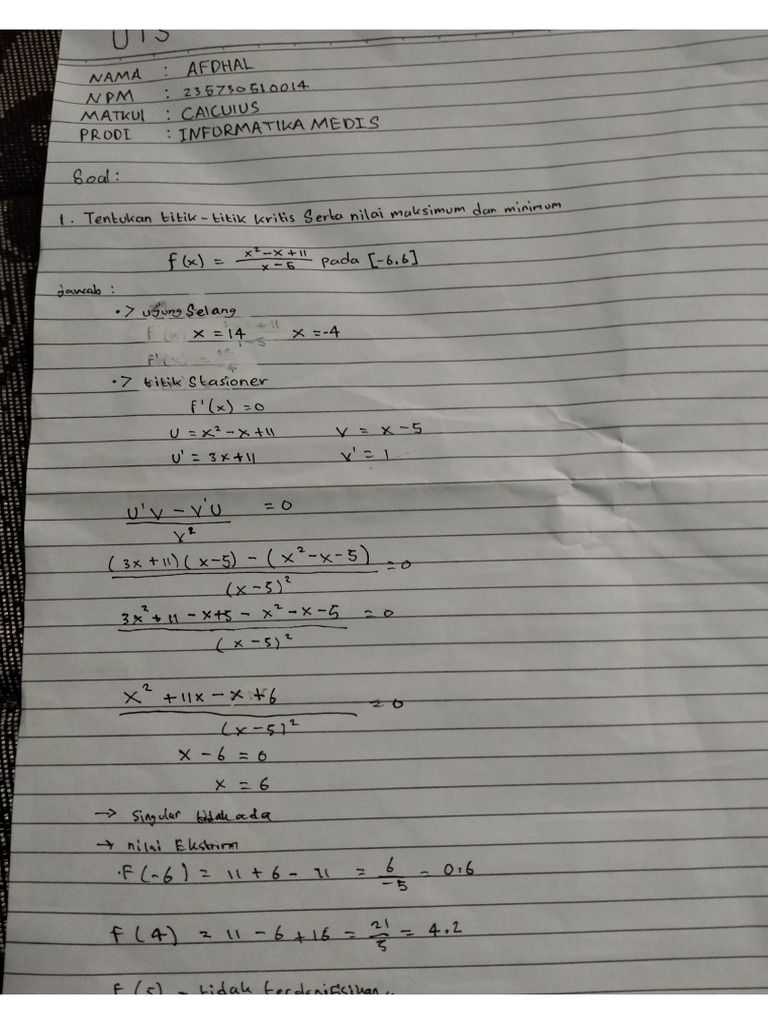 UTS
NAMA : AFDHAL
NPM : 235730510014
MATKUL : CALCULUS
PRODI : INFORMATIKA MEDIS
Soal :
1. Tentukan titik-titik kritis Serta nilai maksimum dan minimum
f(x) = (x² - x + 11)/(x - 5) pada [-6,6]
jawab :
•> ujung Selang
x = 14 x = -4
•> titik Stasioner
f'(x) = 0
U = x² - x + 11 V = x - 5
U' = 3x + 11 V' = 1
(U'V - V'U)/V² = 0
((3x + 11)(x - 5) - (x² - x - 5))/(x - 5)² = 0
(3x² + 11 - x + 5 - x² - x - 5)/(x - 5)² = 0
(x² + 11x - x + 6)/(x - 5)² = 0
x - 6 = 0
x = 6
→ Singular tidak ada
→ nilai Ekstrim
•F(-6) = 11 + 6 - 11 = 6/-5 - 0,6
F(4) = 11 - 6 + 16 = 21/5 = 4.2
F(5) - tidak terdenifisikan..